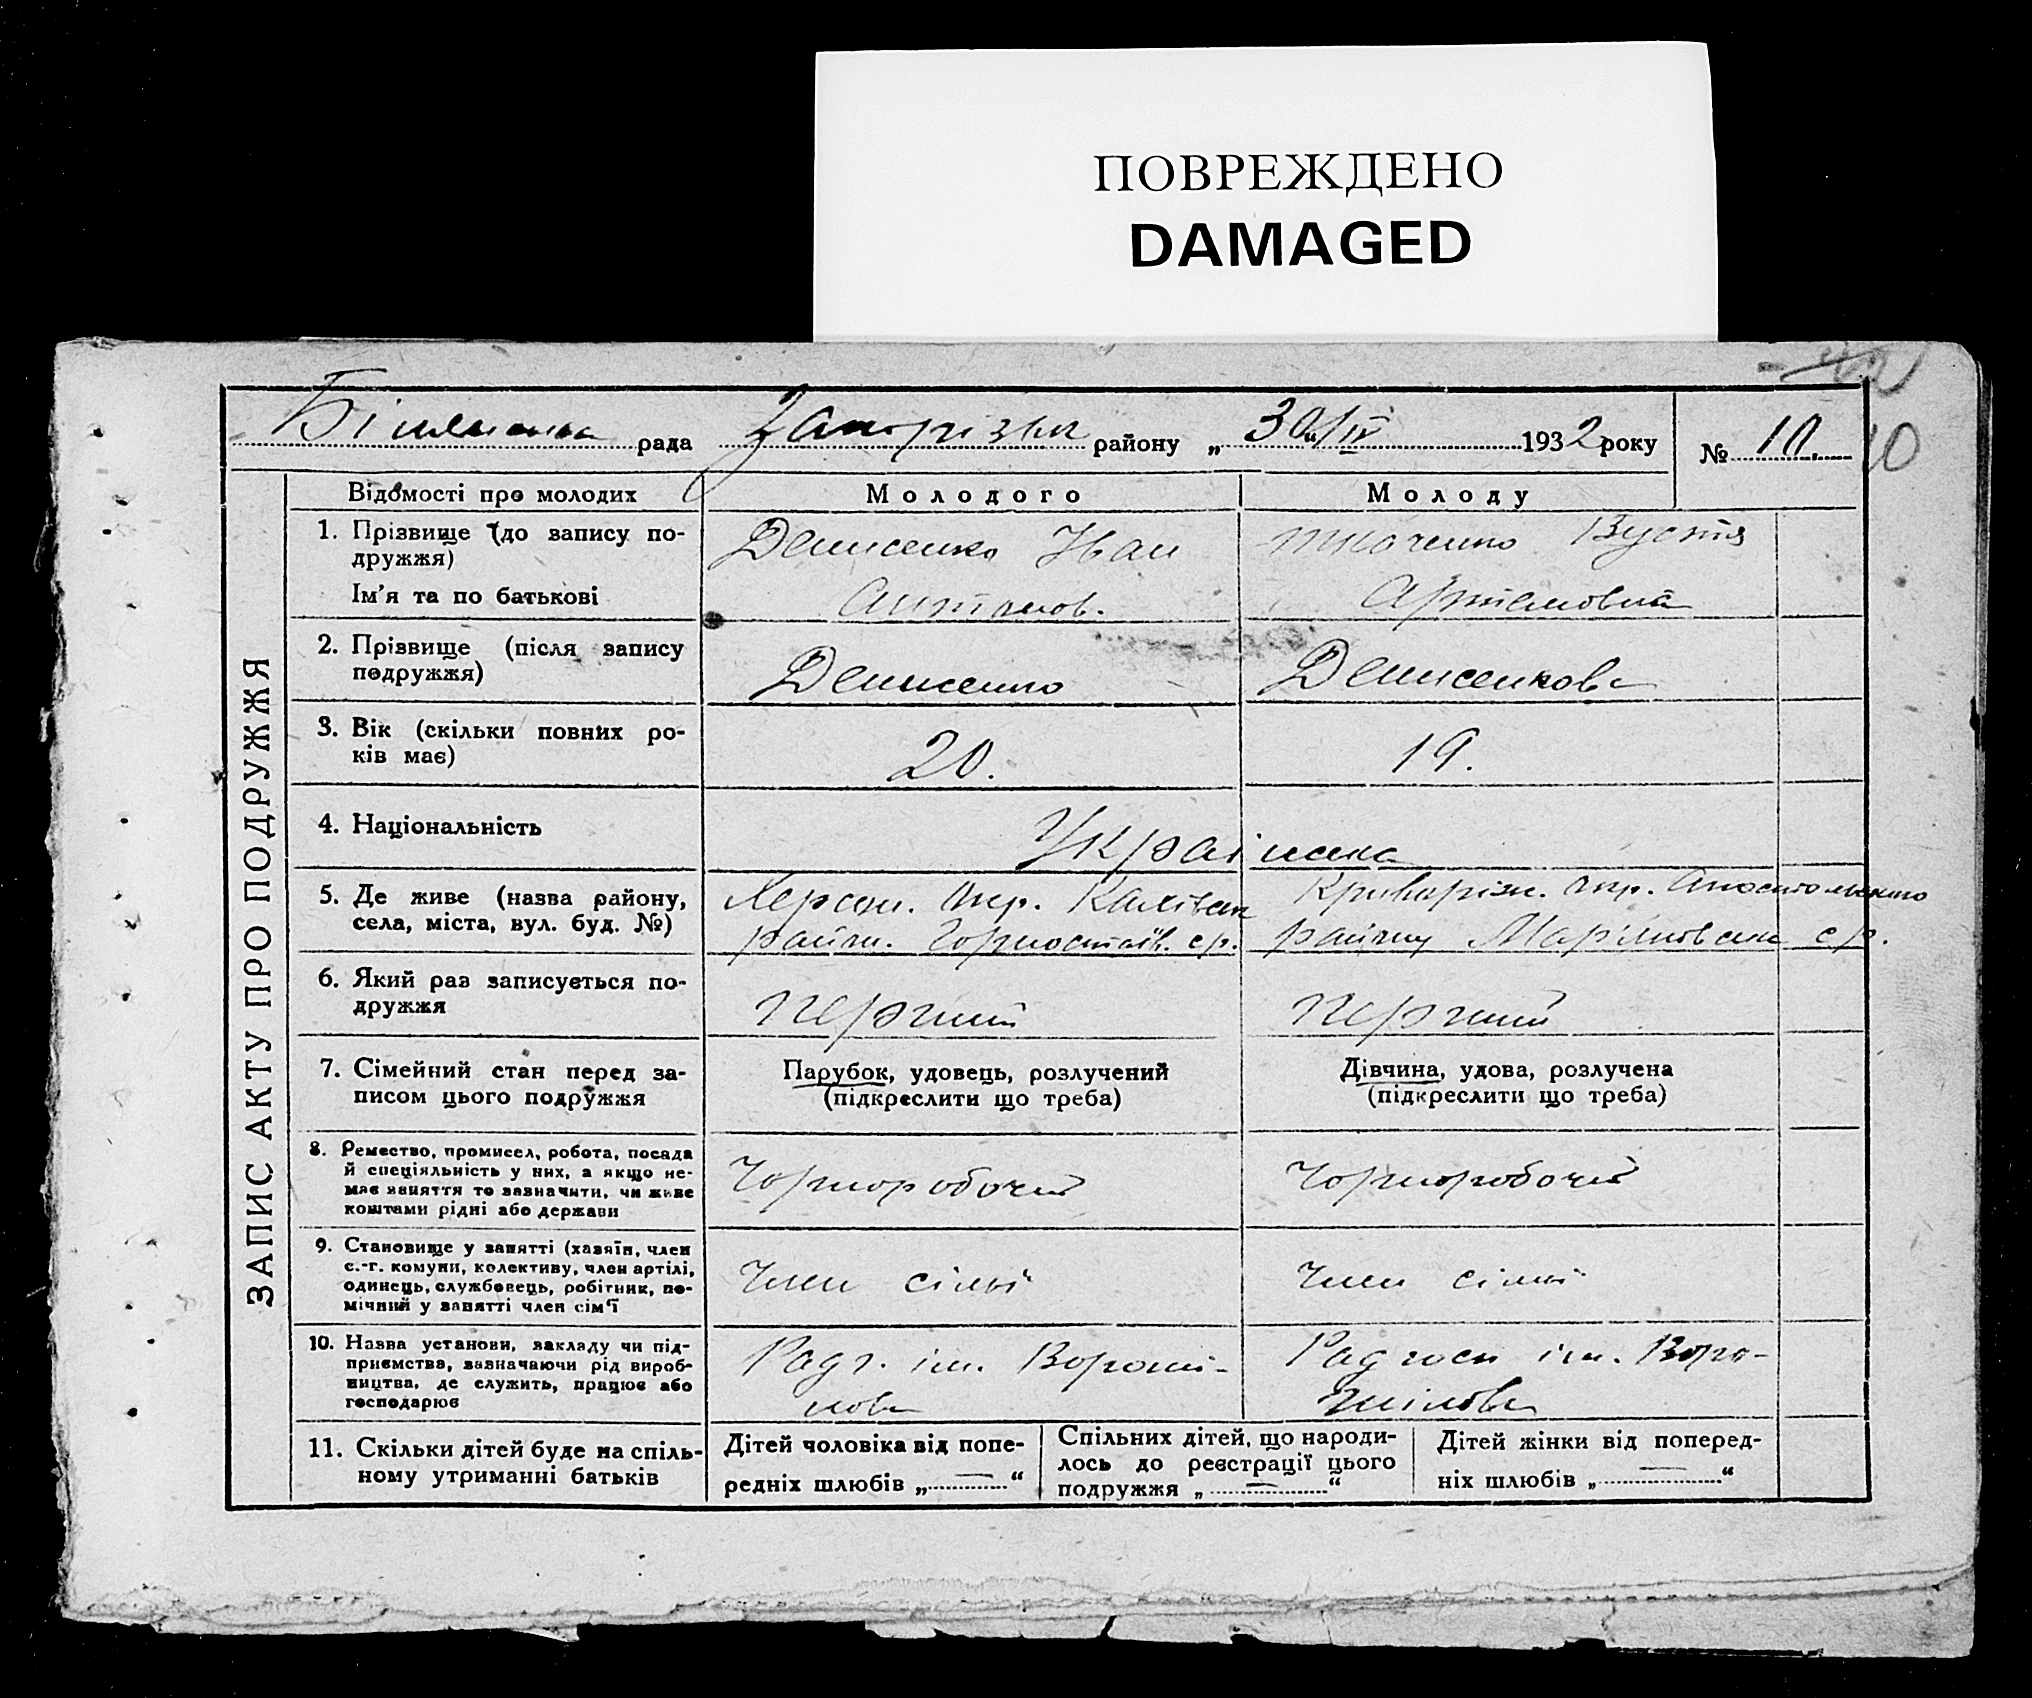 ПОВРЕЖДЕНО
DAMAGED
рада Запорізьк району „ 30 / IV 1932 року № 10. 10
ЗАПИС АКТУ ПРО ПОДРУЖЖЯ
Відомості про молодих Молодого Молоду
1. Прізвище (до запису по-
дружжя)
Денисенко Іван Ткаченко Вустя
Ім'я та по батькові Антонов. Артамовна
2. Прізвище (після запису
подружжя)
Денисенко Денисенкова
3. Вік (скільки повних ро-
ків має)
20. 19.
4. Національність
5. Де живе (назва району,
села, міста, вул. буд. №)
Херсон. окр. Криворізк. окр. Апостольського
район. Горностаїв. с/р. району Мар'яновська с/р.
6. Який раз записується по-
дружжя
перший перший
7. Сімейний стан перед за-
писом цього подружжя
Парубок, удовець, розлучений
(підкреслити що треба)
Дівчина, удова, розлучена
(підкреслити що треба)
8. Ремество, промисел, робота, посада
й спеціяльність у них, а якщо не-
має заняття то зазначити, чи живе
коштами рідні або держави
Чорноробочий Чорноробочий
9. Становище у занятті (хазяїн, член
с.-г. комуни, колективу, член артілі,
одинець, службовець, робітник, по-
мічний у занятті член сім'ї
Член сімьї Член сімьї
10. Назва установи, закладу чи під-
приємства, зазначаючи рід вироб-
ництва, де служить, працює або
господарює
Радг. ім. Вороши-
лова
Радгосп ім. Воро-
шілова
11. Скільки дітей буде на спіль-
ному утриманні батьків
Дітей чоловіка від попе-
редніх шлюбів „ — “
Спільних дітей, що народи-
лось до реєстрації цього
подружжя „ — “
Дітей жінки від поперед-
ніх шлюбів „ — “